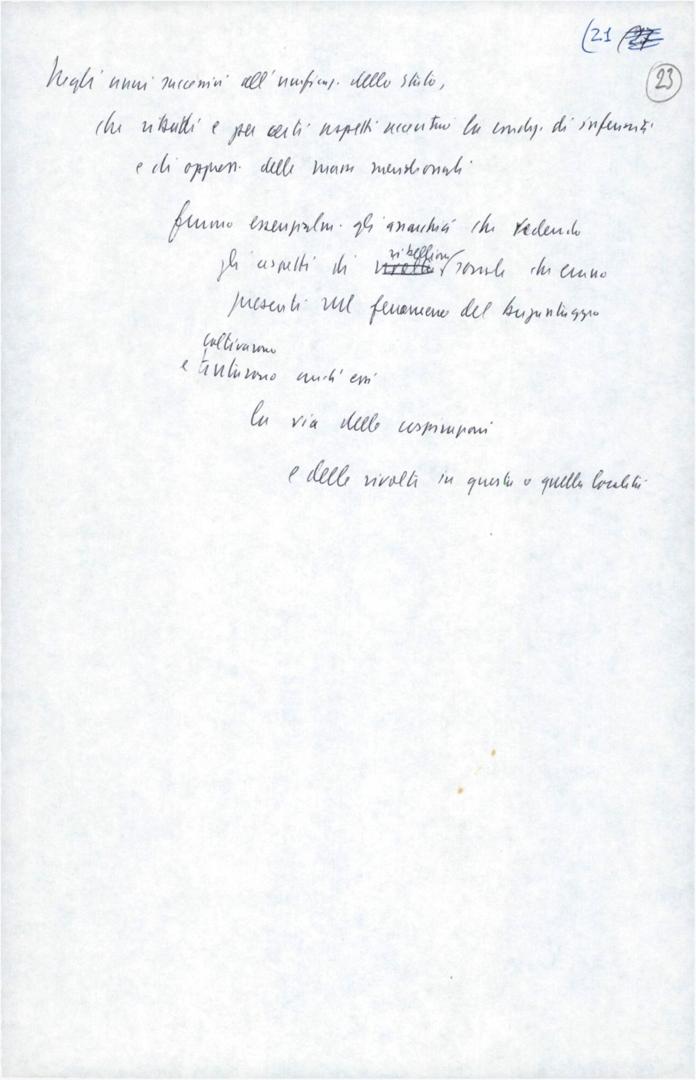 (21
23
Negli anni successivi all'unificaz. dello Stato,
che ribadì e per certi aspetti accentuò la condiz. di inferiorità
e di oppress. delle masse meridionali
furono essenzialm. gli anarchici che vedendo
gli aspetti di ribellione sociale che erano
presenti nel fenomeno del brigantaggio
coltivarono
e tentarono anch'essi
la via delle cospirazioni
e delle rivolte in questa o quella località